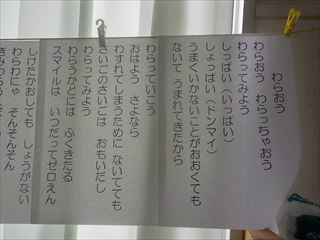 わらおう
わらおう　わらっちゃおう
わらってみよう
しっぱい（いっぱい）
しょっぱい（ドンマイ）
うまくいかないことがおおくても
ないて うまれてきたから
わらっていこう
おはよう　さよなら
わすれてしまうために ないてても
さいごのさいごは　おもいだし
わらってみよう
わらうかどには　ふくきたる
スマイルは　いつだってゼロえん
しけたかおしても　しょうがない
わらわにゃ　そんそんそん